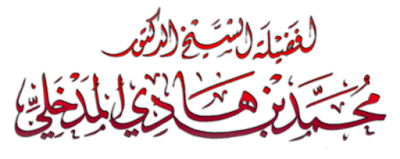 لفضيلة الشيخ الدكتور
محمد بن هادي المدخلي